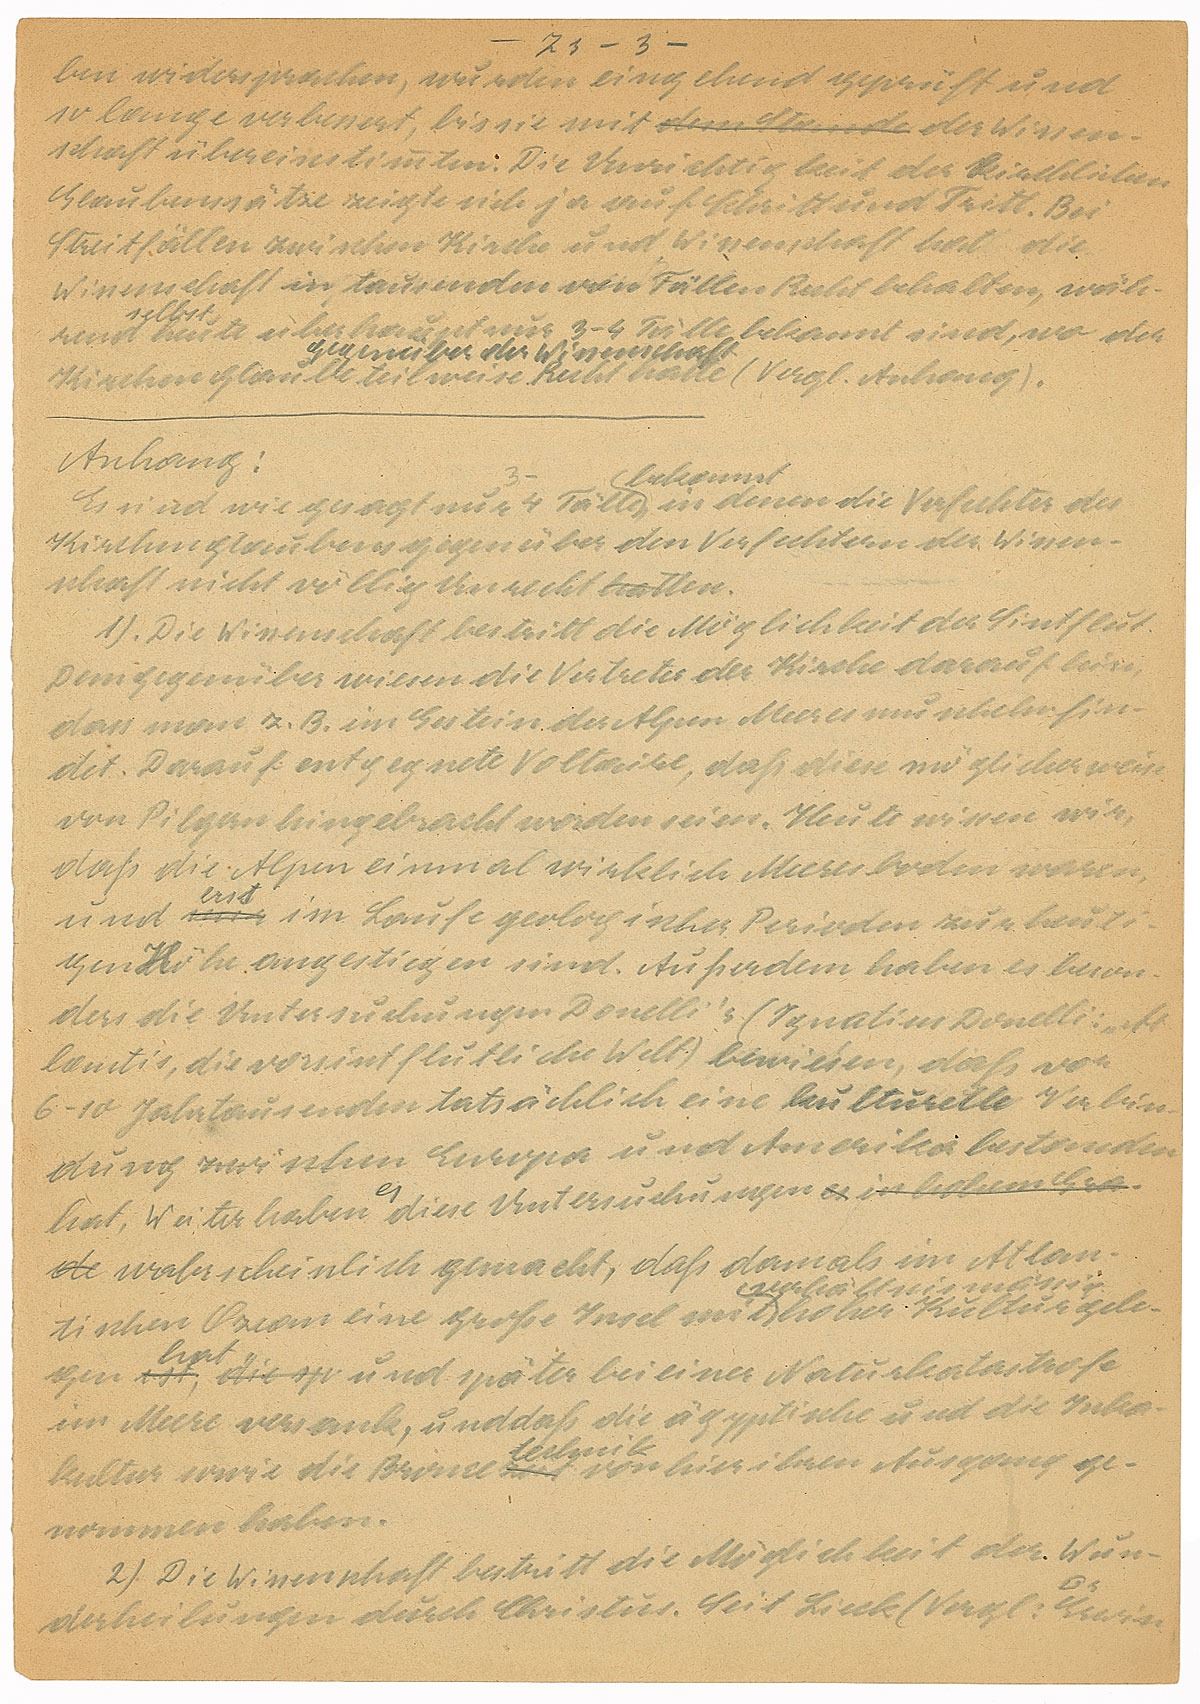 - Zs - 3 -
ben widersprachen, wurden eingehend geprüft und
so lange verbessert, bis sie mit dem Stande der Wissen-
schaft übereinstimmten. Die Unrichtigkeit der kirchlichen
Glaubenssätze zeigte sich ja auf Schritt und Tritt. Bei
Streitfällen zwischen Kirche und Wissenschaft hat die
Wissenschaft in tausenden von Fällen Recht behalten, wäh-
selbst
rend heute überhaupt nur 3-4 Fälle bekannt sind, wo der
gegenüber der Wissenschaft
Kirchenglaube teilweise Recht hatte (Vergl. Anhang).
Anhang:
3- bekannt
Es sind wie gesagt nur 4 Fälle, in denen die Verfechter des
Kirchenglaubens gegenüber den Verfechtern der Wissen-
schaft nicht völlig Unrecht hatten.
1). Die Wissenschaft bestritt die Möglichkeit der Sintflut.
Demgegenüber wiesen die Vertreter der Kirche darauf hin,
dass man z. B. im Gestein der Alpen Meeresmuscheln fin-
det. Darauf entgegnete Voltaire, daß diese möglicherweise
von Pilgern hingebracht worden seien. Heute wissen wir,
daß die Alpen einmal wirklich Meeresboden waren,
erst
und im Laufe geologischer Perioden zur heuti-
gen Höhe angestiegen sind. Außerdem haben es beson-
ders die Untersuchungen Donelli's (Ignatius Donelli: „At
lantis, die vorsintflutliche Welt) bewiesen, daß vor
6-10 Jahrtausenden tatsächlich eine kulturelle Verbin-
dung zwischen Europa und Amerika bestanden
es
hat, Weiter haben diese Untersuchungen es in hohem Gra-
de wahrscheinlich gemacht, daß damals im Atlan-
verhältnismässig
tischen Ozean eine große Insel mit hoher Kultur gele-
hat
gen ist, die sp und später bei einer Naturkatastrofe
im Meere versank, und daß die ägyptische und die Inka-
technik
kultur sowie die Bronzezeit von hier ihren Ausgang ge-
nommen haben.
2) Die Wissenschaft bestritt die Möglichkeit der Wun-
Dr
derheilungen durch Christus. Seit Lieck (Vergl: Erwin